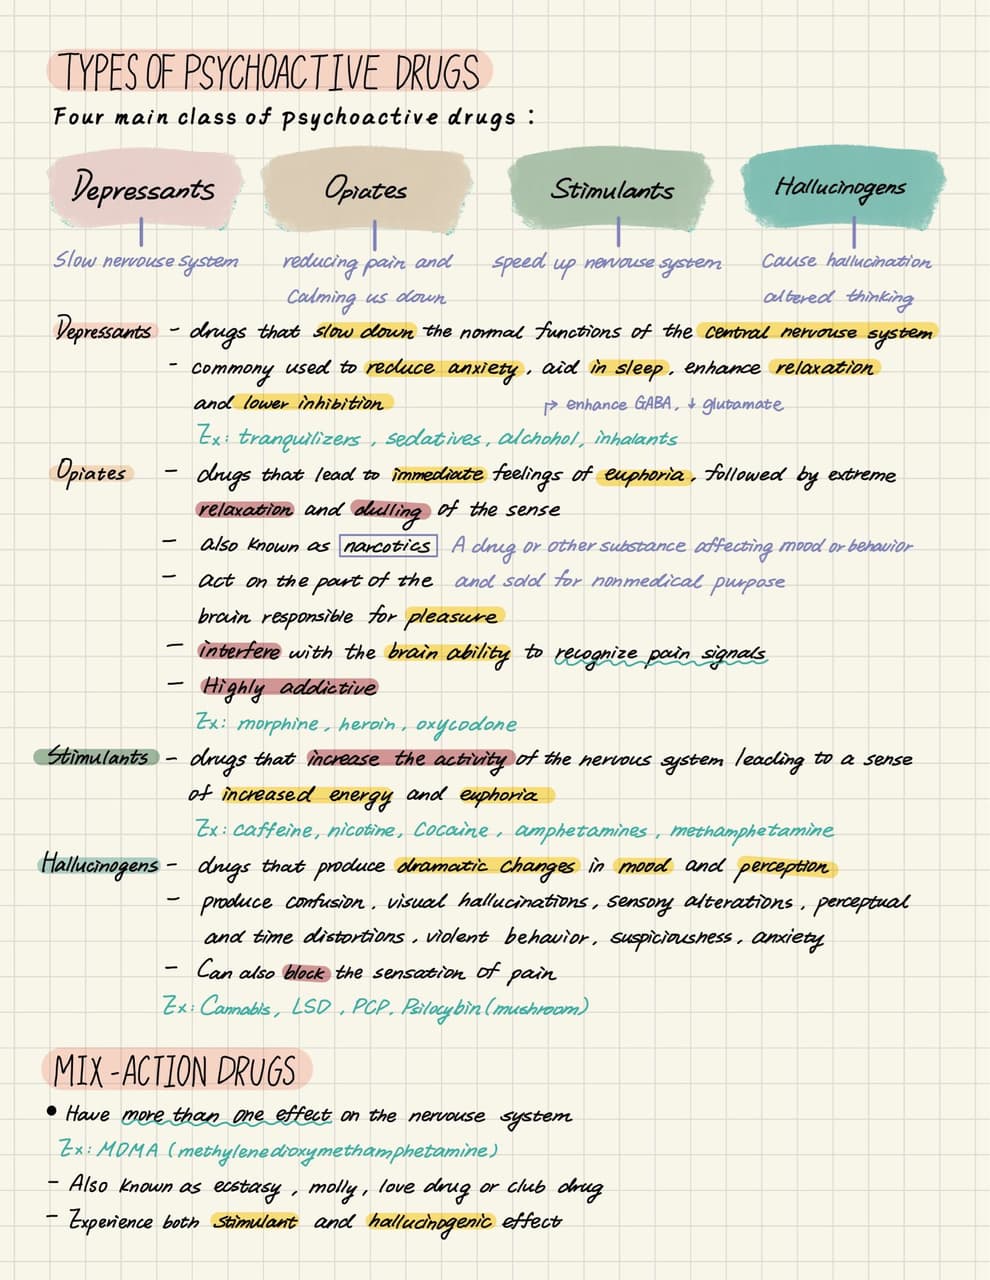 TYPES OF PSYCHOACTIVE DRUGS
Four main class of psychoactive drugs :
Depressants Opiates Stimulants Hallucinogens
Slow nervouse system reducing pain and speed up nervouse system Cause hallucination
Calming us down altered thinking
Depressants - drugs that slow down the normal functions of the central nervouse system
- commony used to reduce anxiety, aid in sleep, enhance relaxation
and lower inhibition ↱ enhance GABA, ↓ glutamate
Ex: tranquilizers, sedatives, alchohol, inhalants
Opiates - drugs that lead to immediate feelings of euphoria, followed by extreme
relaxation and dulling of the sense
- also known as narcotics A drug or other substance affecting mood or behavior
- act on the part of the and sold for nonmedical purpose
brain responsible for pleasure
- interfere with the brain ability to recognize pain signals
- Highly addictive
Ex: morphine, heroin, oxycodone
Stimulants - drugs that increase the activity of the nervous system leading to a sense
of increased energy and euphoria
Ex: caffeine, nicotine, Cocaine, amphetamines, methamphetamine
Hallucinogens - drugs that produce dramatic changes in mood and perception
- produce confusion, visual hallucinations, sensory alterations, perceptual
and time distortions, violent behavior, suspiciousness, anxiety
- Can also block the sensation of pain
Ex: Cannabis, LSD, PCP, Psilocybin (mushroom)
MIX-ACTION DRUGS
• Have more than one effect on the nervouse system
Ex: MDMA (methylenedioxymethamphetamine)
- Also known as ecstasy, molly, love drug or club drug
- Experience both stimulant and hallucinogenic effect